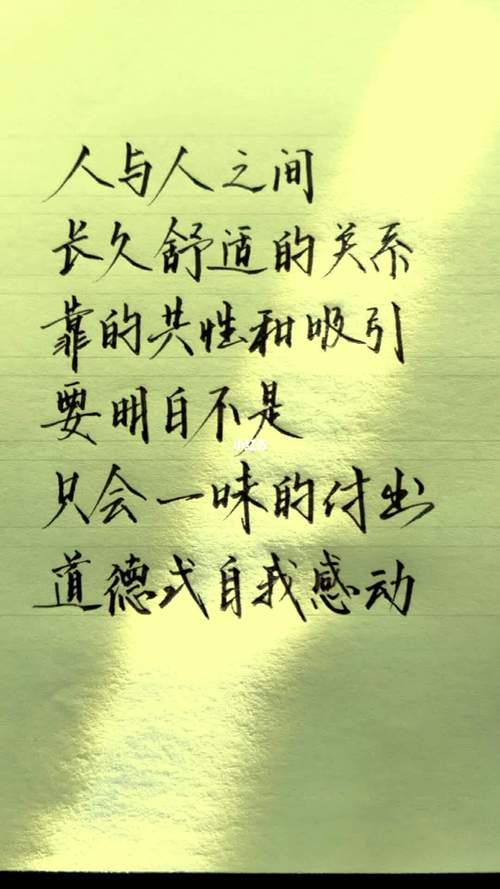 人与人之间
长久舒适的关系
靠的共性和吸引
要明白不是
只会一味的付出
道德式自我感动